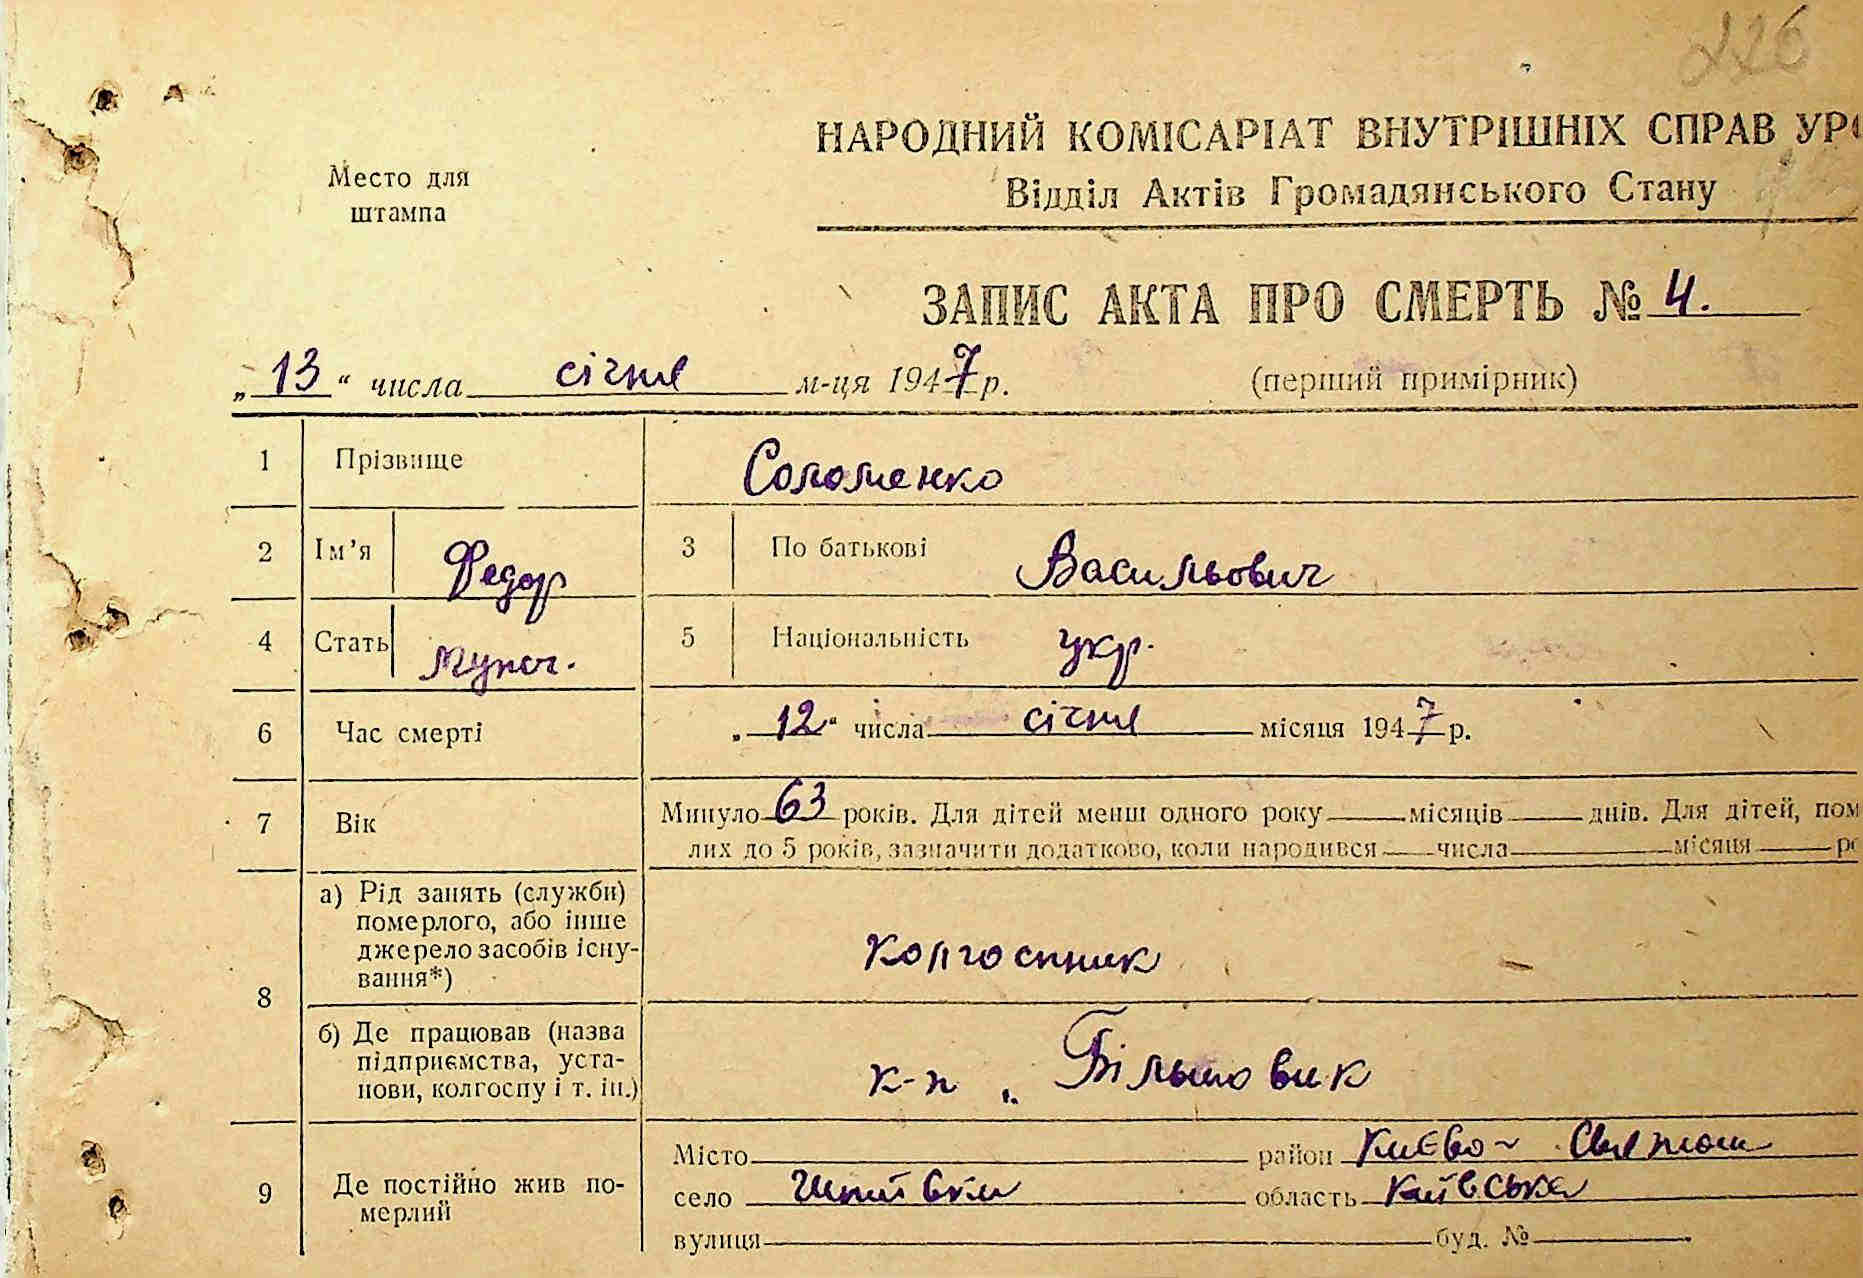 226
НАРОДНИЙ КОМІСАРІАТ ВНУТРІШНІХ СПРАВ УРС
Место для
штампа
Відділ Актів Громадянського Стану
ЗАПИС АКТА ПРО СМЕРТЬ № 4.
„13“ числа січня м-ця 1947 р. (перший примірник)
1 Прізвище Соломенко
2 Ім’я Федор 3 По батькові Васильович
4 Стать мужч. 5 Національність укр.
6 Час смерті „12“ числа січня місяця 1947 р.
7 Вік Минуло 63 років. Для дітей менш одного року місяців днів. Для дітей, пом
лих до 5 років, зазначити додатково, коли народився числа місяця ро
8 а) Рід занять (служби)
померлого, або інше
джерело засобів існу-
вання*) Колгоспник
б) Де працював (назва
підприємства, уста-
нови, колгоспу і т. ін.) к-п „Більшовик
9 Де постійно жив по-
мерлий
Місто район Києво-Святош
село Шпитьки область Київська
вулиця буд. №